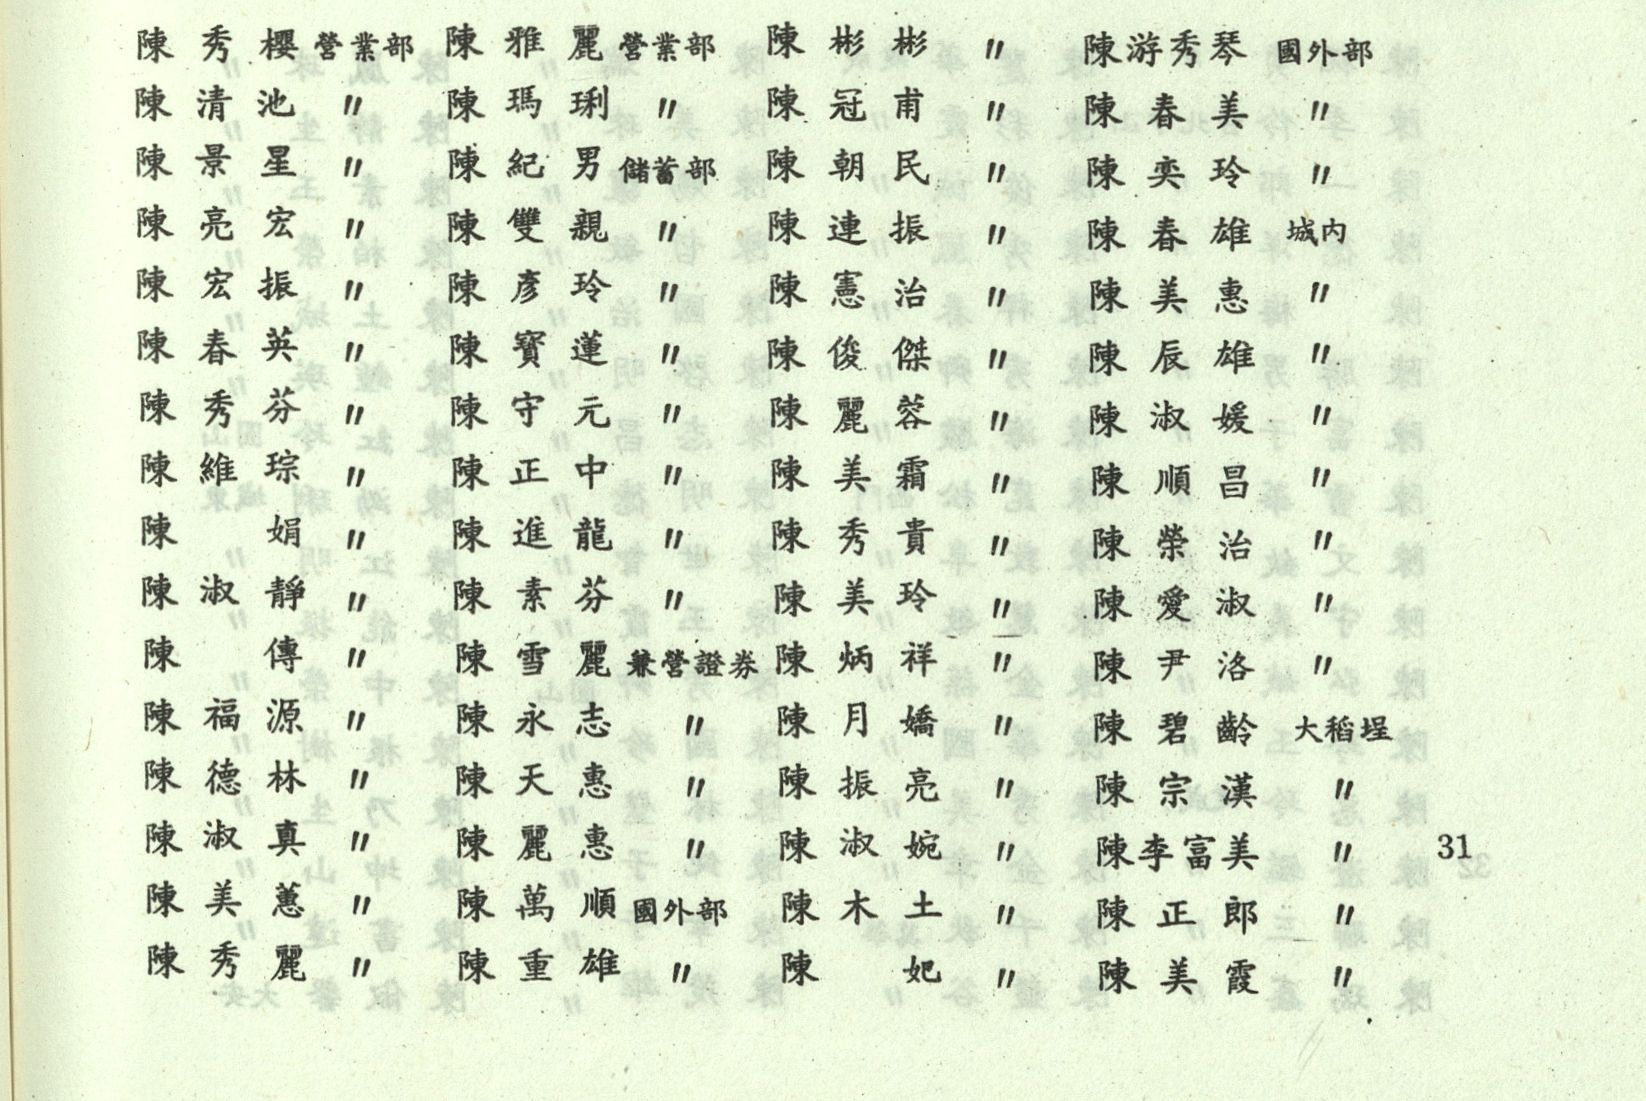 陳秀櫻 營業部 陳雅麗 營業部 陳彬彬 〃 陳游秀琴 國外部
陳清池 〃 陳瑪琍 〃 陳冠甫 〃 陳春美 〃
陳景星 〃 陳紀男 儲蓄部 陳朝民 〃 陳奕玲 〃
陳亮宏 〃 陳雙親 〃 陳連振 〃 陳春雄 城內
陳宏振 〃 陳彥玲 〃 陳憲治 〃 陳美惠 〃
陳春英 〃 陳寶蓮 〃 陳俊傑 〃 陳辰雄 〃
陳秀芬 〃 陳守元 〃 陳麗蓉 〃 陳淑媛 〃
陳維琮 〃 陳正中 〃 陳美霜 〃 陳順昌 〃
陳娟 〃 陳進龍 〃 陳秀貴 〃 陳榮治 〃
陳淑靜 〃 陳素芬 〃 陳美玲 〃 陳愛淑 〃
陳傳 〃 陳雪麗 兼營證券 陳炳祥 〃 陳尹洛 〃
陳福源 〃 陳永志 〃 陳月嬌 〃 陳碧齡 大稻埕
陳德林 〃 陳天惠 〃 陳振亮 〃 陳宗漢 〃
陳淑真 〃 陳麗惠 〃 陳淑婉 〃 陳李富美 〃 31
陳美蕙 〃 陳萬順 國外部 陳木土 〃 陳正郎 〃
陳秀麗 〃 陳重雄 〃 陳妃 〃 陳美霞 〃